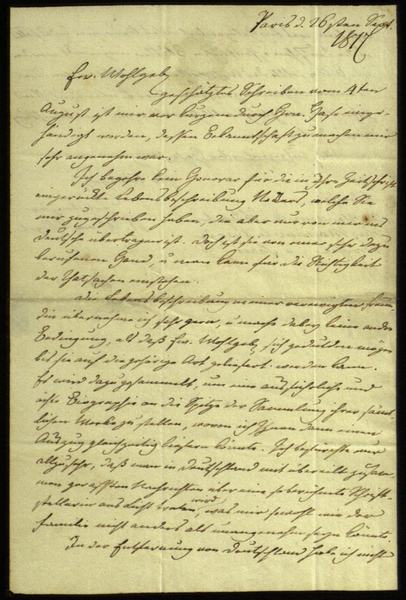 Paris d. 16ten Sept.
1817
Ew. Wohlgeb.
geschätztes Schreiben vom 4ten
August ist mir vor kurzem durch Hrn. Hase einge-
händigt worden, dessen Bekanntschaft zu machen mir
sehr angenehm war.
Ich begehre kein Honorar für die in Ihre Zeitschrift
eingerückte Lebensbeschreibung Neckers, welche Sie
mir zugeschrieben haben, die aber nur von mir ins
Deutsche übertragen ist. Doch ist sie von einer sehr dazu
berufenen Hand, u man kann für die Richtigkeit
der Thatsachen einstehen.
Die Lebensbeschreibung meiner verewigten Freun-
din übernehme ich sehr gern, u mache dabey keine andre
Bedingung, als daß Ew. Wohlgeb. sich gedulden mögen
bis sie auf die gehörige Art geliefert werden kann.
Es wird dazu gesammelt, um eine ausführliche und
ächte Biographie an die Spitze der Sammlung ihrer sämt-
lichen Werke zu stellen, wovon ich Ihnen dann einen
Auszug gleichzeitig liefern könnte. Ich befürchte nur
allzusehr, daß man in Deutschland mit übereilt zusam-
men gerafften Nachrichten über eine so berühmte Schrift-
stellerin ans Licht treten wird, was mir sowohl wie der
Familie nicht anders als unangenehm seyn könnte.
In der Entfernung von Deutschland habe ich nicht